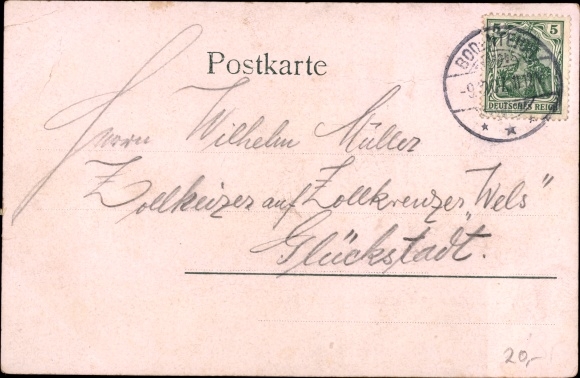 Postkarte
5 5
DEUTSCHES REICH
Herrn Wilhelm Müller
Zollheizer auf Zollkreuzer „Wels“
Glückstadt.
20,-